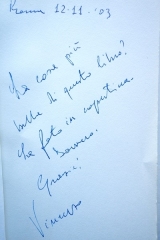 Roma 12-11-'03
La cosa più
bella di questo libro?
La foto in copertina.
Davvero.
Grazie!
Vincenzo